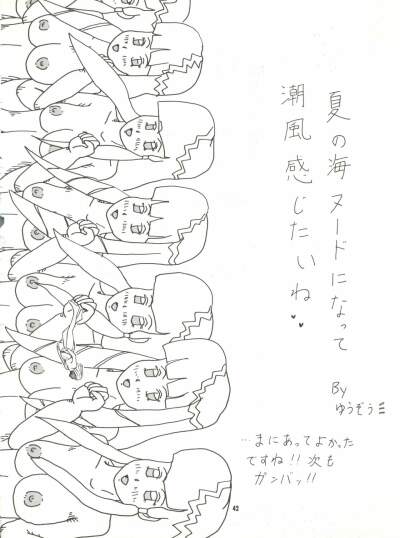 夏の海ヌードになって
潮風感じたいね
By
ゆうぞうミ
…まにあってよかった
ですね!!次も
ガンバッ!!
42